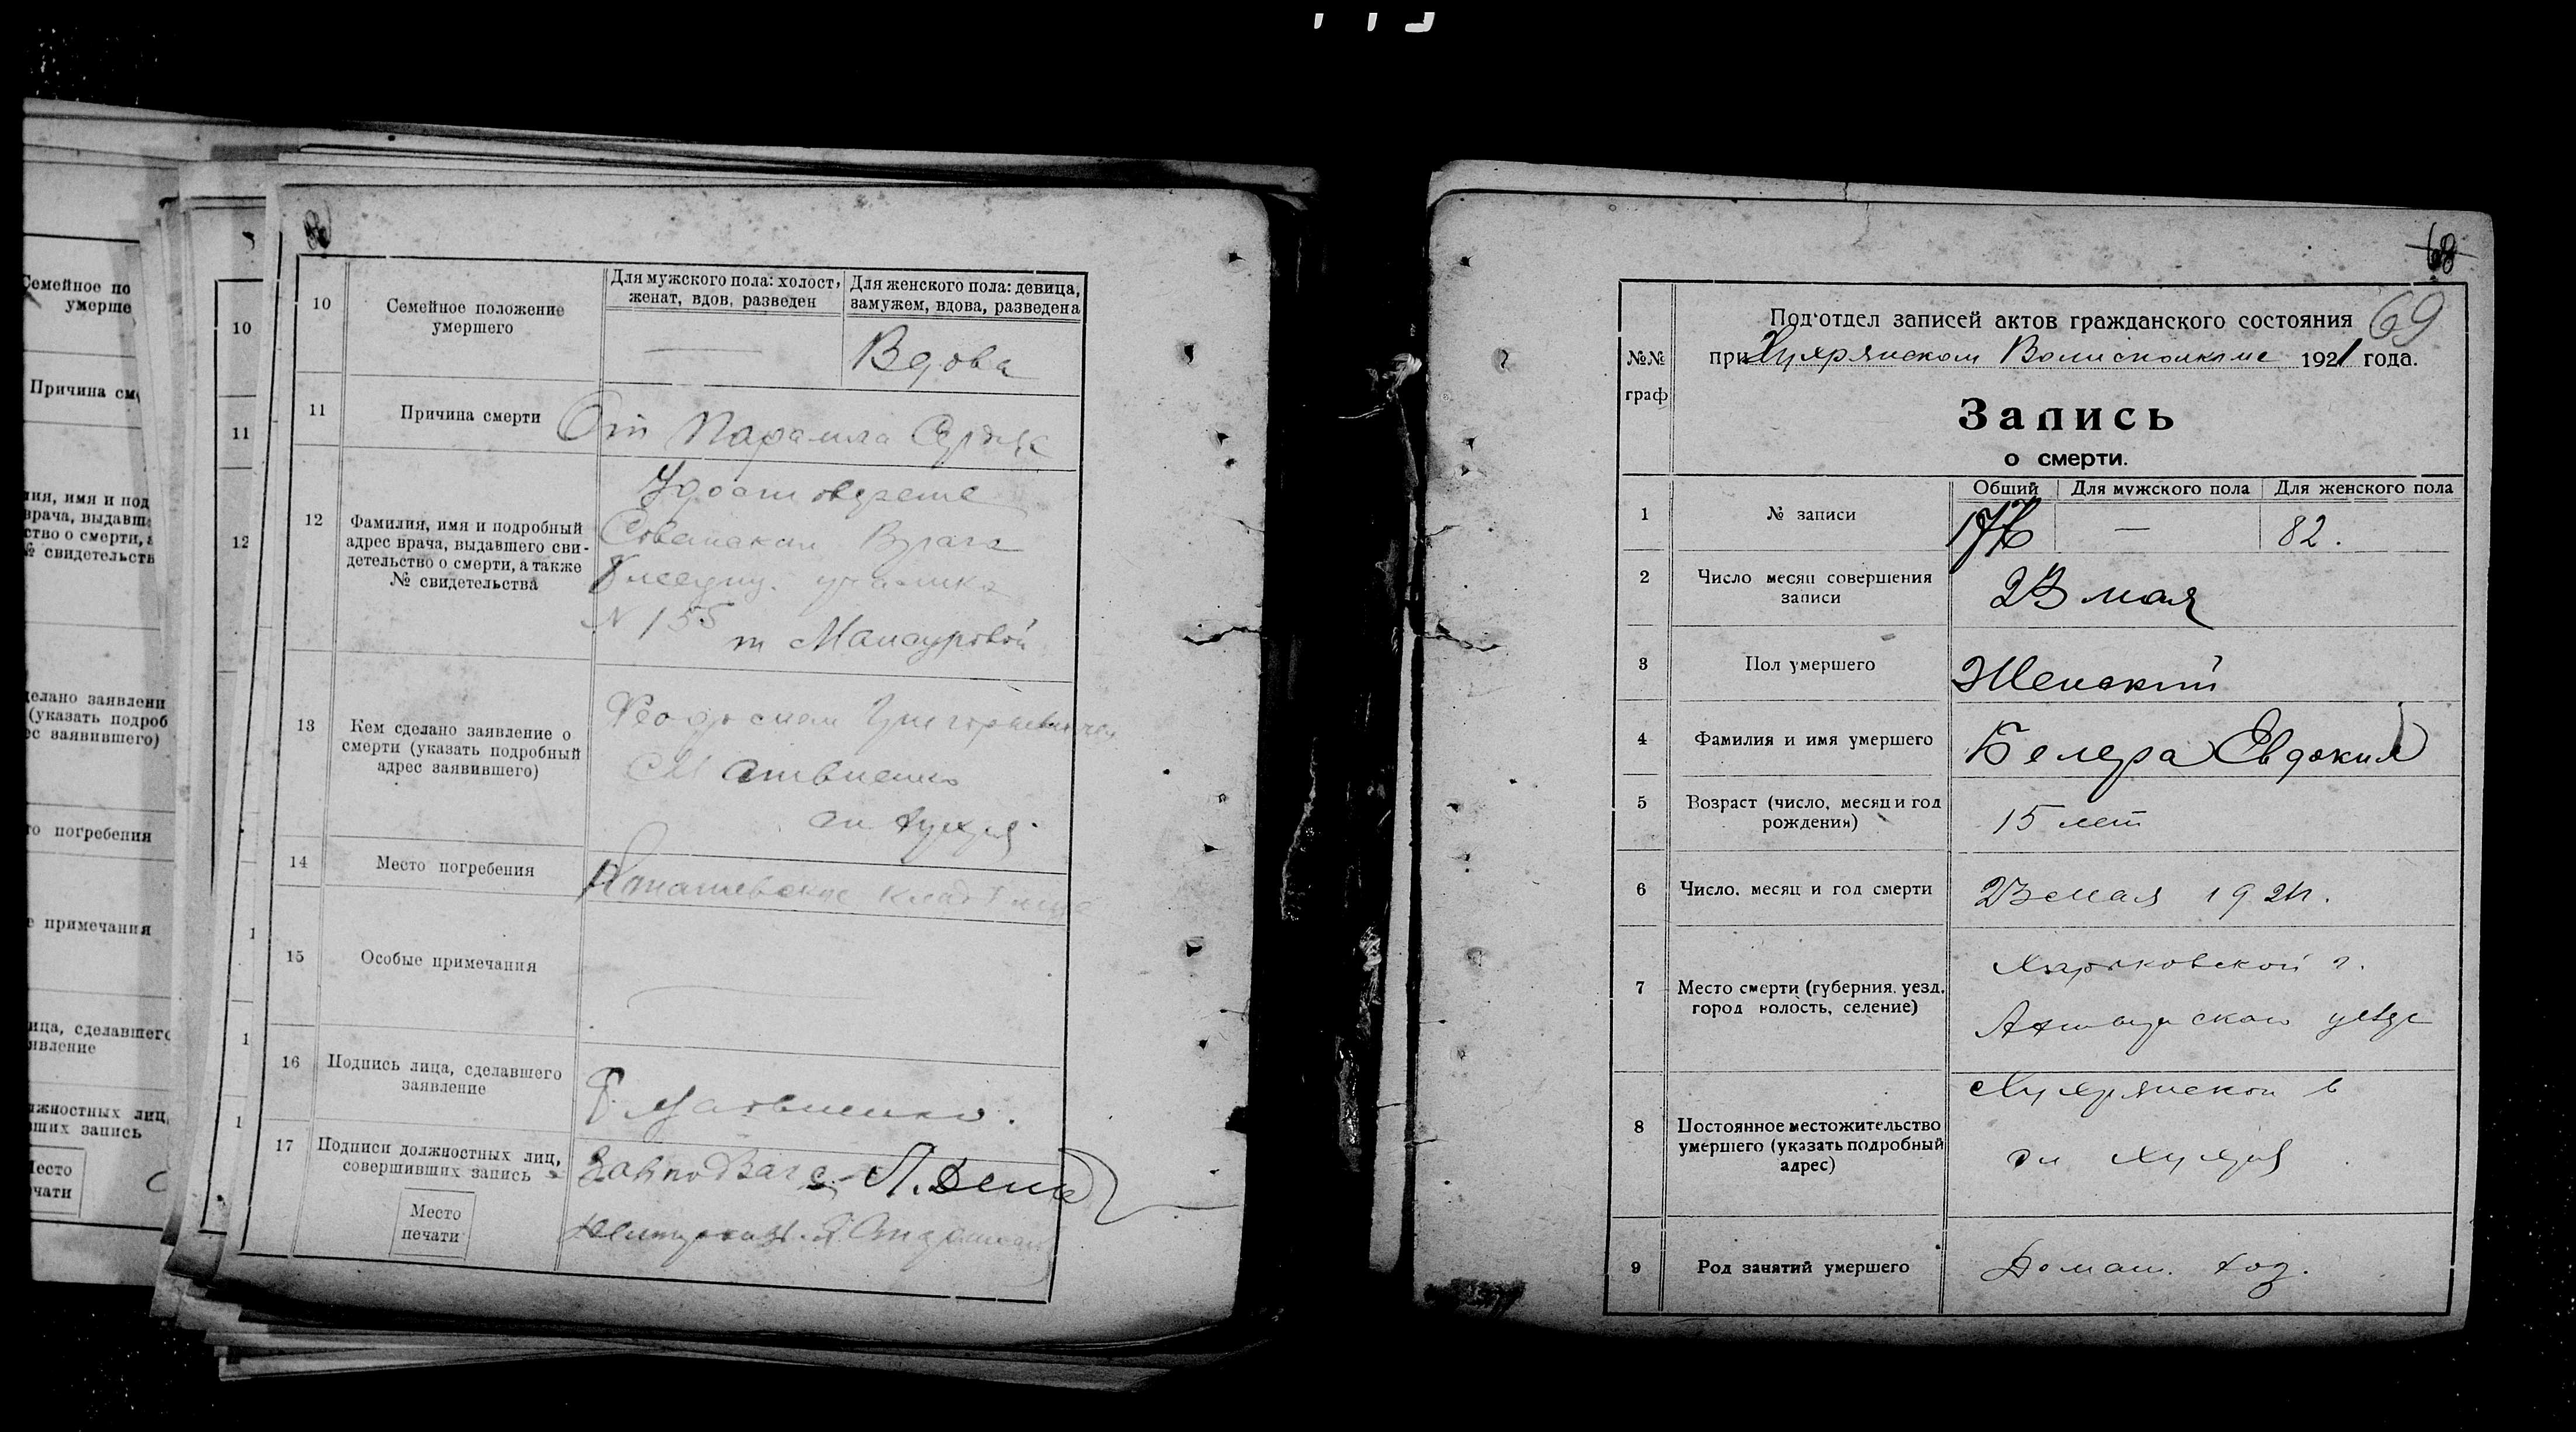 Семейное по
умерше
Причина см
ния, имя и под
врача, выдавш
ство о смерти, а
№ свидетельств
делано заявлени
(указать подроб
ес заявившего)
го погребения
е примечания
ица, сделавшего
явление
лжностных лиц,
вших запись
Место
печати
10
11
12
1
1
1
10
Семейное положение
умершего
Для мужского пола: холост,
женат, вдов, разведен
Для женского пола: девица,
замужем, вдова, разведена
—
Вдова
11
Причина смерти
От Паралича Сердца
12
Фамилия, имя и подробный
адрес врача, выдавшего сви-
детельство о смерти, а также
№ свидетельства
Врача
N 155
13
Кем сделано заявление о
смерти (указать подробный
адрес заявившего)
Феодосием Григорьевичем
Матвиенко
сл Хухря
14
Место погребения
15
Особые примечания
16
Подпись лица, сделавшего
заявление
Ф Матвиенко.
17
Подписи должностных лиц,
совершивших запись
Место
печати
68
69
№№
граф
Под'отдел записей актов гражданского состояния
при Хухрянском Волисполкоме 1921 года.
Запись
о смерти.
1
№ записи
Общий
Для мужского пола
Для женского пола
—
82.
2
Число месяц совершения
записи
23 мая
3
Пол умершего
Женский
4
Фамилия и имя умершего
Белера Евдокия
5
Возраст (число, месяц и год
рождения)
15 лет
6
Число, месяц и год смерти
23 мая 1921.
7
Место смерти (губерния, уезд,
город волость, селение)
Харьковской г.
Ахтырского уезда
8
Постоянное местожительство
умершего (указать подробный
адрес)
Хухрянской в
сл Хухря
9
Род занятий умершего
Домаш. хоз.